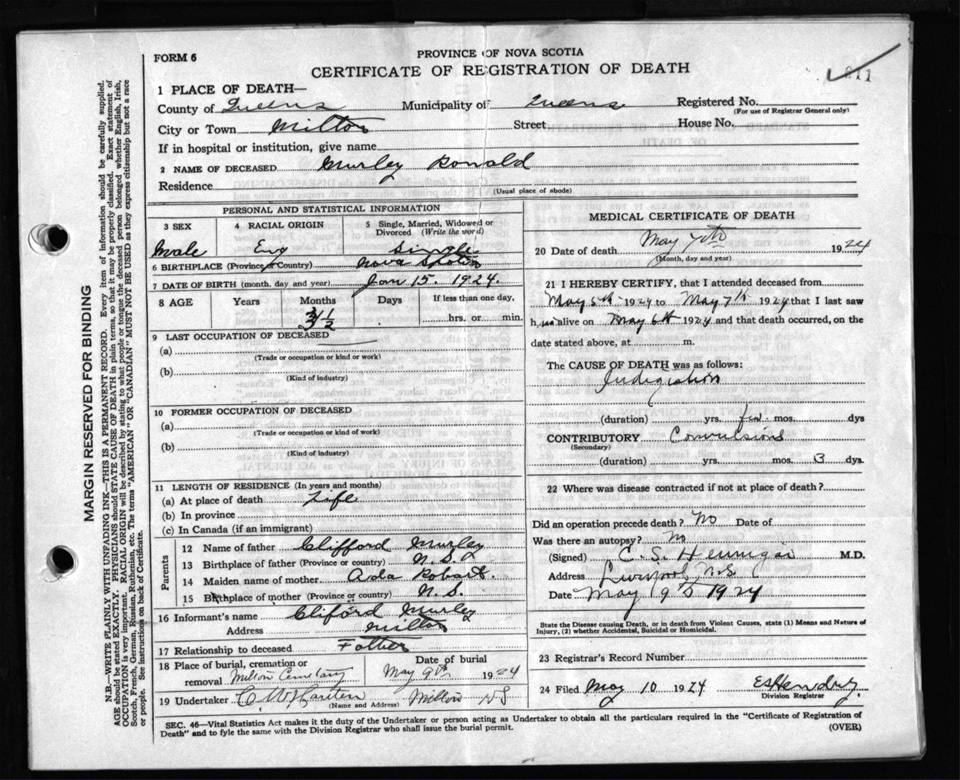 FORM 6
PROVINCE OF NOVA SCOTIA
CERTIFICATE OF REGISTRATION OF DEATH
811
1 PLACE OF DEATH—
County of Queens Municipality of Queens Registered No.
(For use of Registrar General only)
City or Town Milton Street House No.
If in hospital or institution, give name
2 NAME OF DECEASED Murley Ronald
Residence
(Usual place of abode)
PERSONAL AND STATISTICAL INFORMATION
3 SEX 4 RACIAL ORIGIN 5 Single, Married, Widowed or Divorced (Write the word)
Male Eng Single
6 BIRTHPLACE (Province or Country) Nova Scotia
7 DATE OF BIRTH (month, day and year) Jan 15. 1924.
8 AGE Years Months Days If less than one day,
3 1/2 hrs. or min.
9 LAST OCCUPATION OF DECEASED
(a)
(Trade or occupation or kind or work)
(b)
(Kind of industry)
10 FORMER OCCUPATION OF DECEASED
(a)
(Trade or occupation or kind of work)
(b)
(Kind of industry)
11 LENGTH OF RESIDENCE (In years and months)
(a) At place of death Life
(b) In province
(c) In Canada (if an immigrant)
Parents
12 Name of father Clifford Murley
13 Birthplace of father (Province or country) N.S.
14 Maiden name of mother Ada
15 Birthplace of mother (Province or country) N.S.
16 Informant's name Cliford Murley
Address Milton
17 Relationship to deceased Father
18 Place of burial, cremation or removal Milton Cemetary
Date of burial May 9th 1924
19 Undertaker C. W. Milton NS
(Name and Address)
MEDICAL CERTIFICATE OF DEATH
20 Date of death May 7th 1924
(Month, day and year)
21 I HEREBY CERTIFY, that I attended deceased from
May 5th 1924 to May 7th 1924 that I last saw
h im alive on May 6th 1924 and that death occurred, on the
date stated above, at m.
The CAUSE OF DEATH was as follows:
Indigestion
(duration) yrs. few mos. dys
CONTRIBUTORY Convulsions
(Secondary)
(duration) yrs. mos. 3 dys.
22 Where was disease contracted if not at place of death?
Did an operation precede death? No Date of
Was there an autopsy? No
(Signed) C. S. Hennigar M.D.
Address Liverpool N.S.
Date May 9th 1924
State the Disease causing Death, or in death from Violent Causes, state (1) Means and Nature of
Injury, (2) whether Accidental, Suicidal or Homicidal.
23 Registrar's Record Number
24 Filed May 10 1924
Division Registrar
SEC. 46—Vital Statistics Act makes it the duty of the Undertaker or person acting as Undertaker to obtain all the particulars required in the "Certificate of Registration of
Death" and to fyle the same with the Division Registrar who shall issue the burial permit.
(OVER)
MARGIN RESERVED FOR BINDING
N.B.—WRITE PLAINLY WITH UNFADING INK—THIS IS A PERMANENT RECORD. Every item of information should be carefully supplied.
AGE should be stated EXACTLY. PHYSICIANS should STATE CAUSE OF DEATH in plain terms, so that it may be properly classified. Exact statement of
OCCUPATION is very important. RACIAL ORIGIN will be described by stating to what people or tongue the deceased person belonged whether English, Irish,
Scotch, French, German, Russian, Ruthenian, etc. The terms "AMERICAN" OR "CANADIAN" MUST NOT BE USED as they express citizenship but not a race
or people. See instructions on back of Certificate.